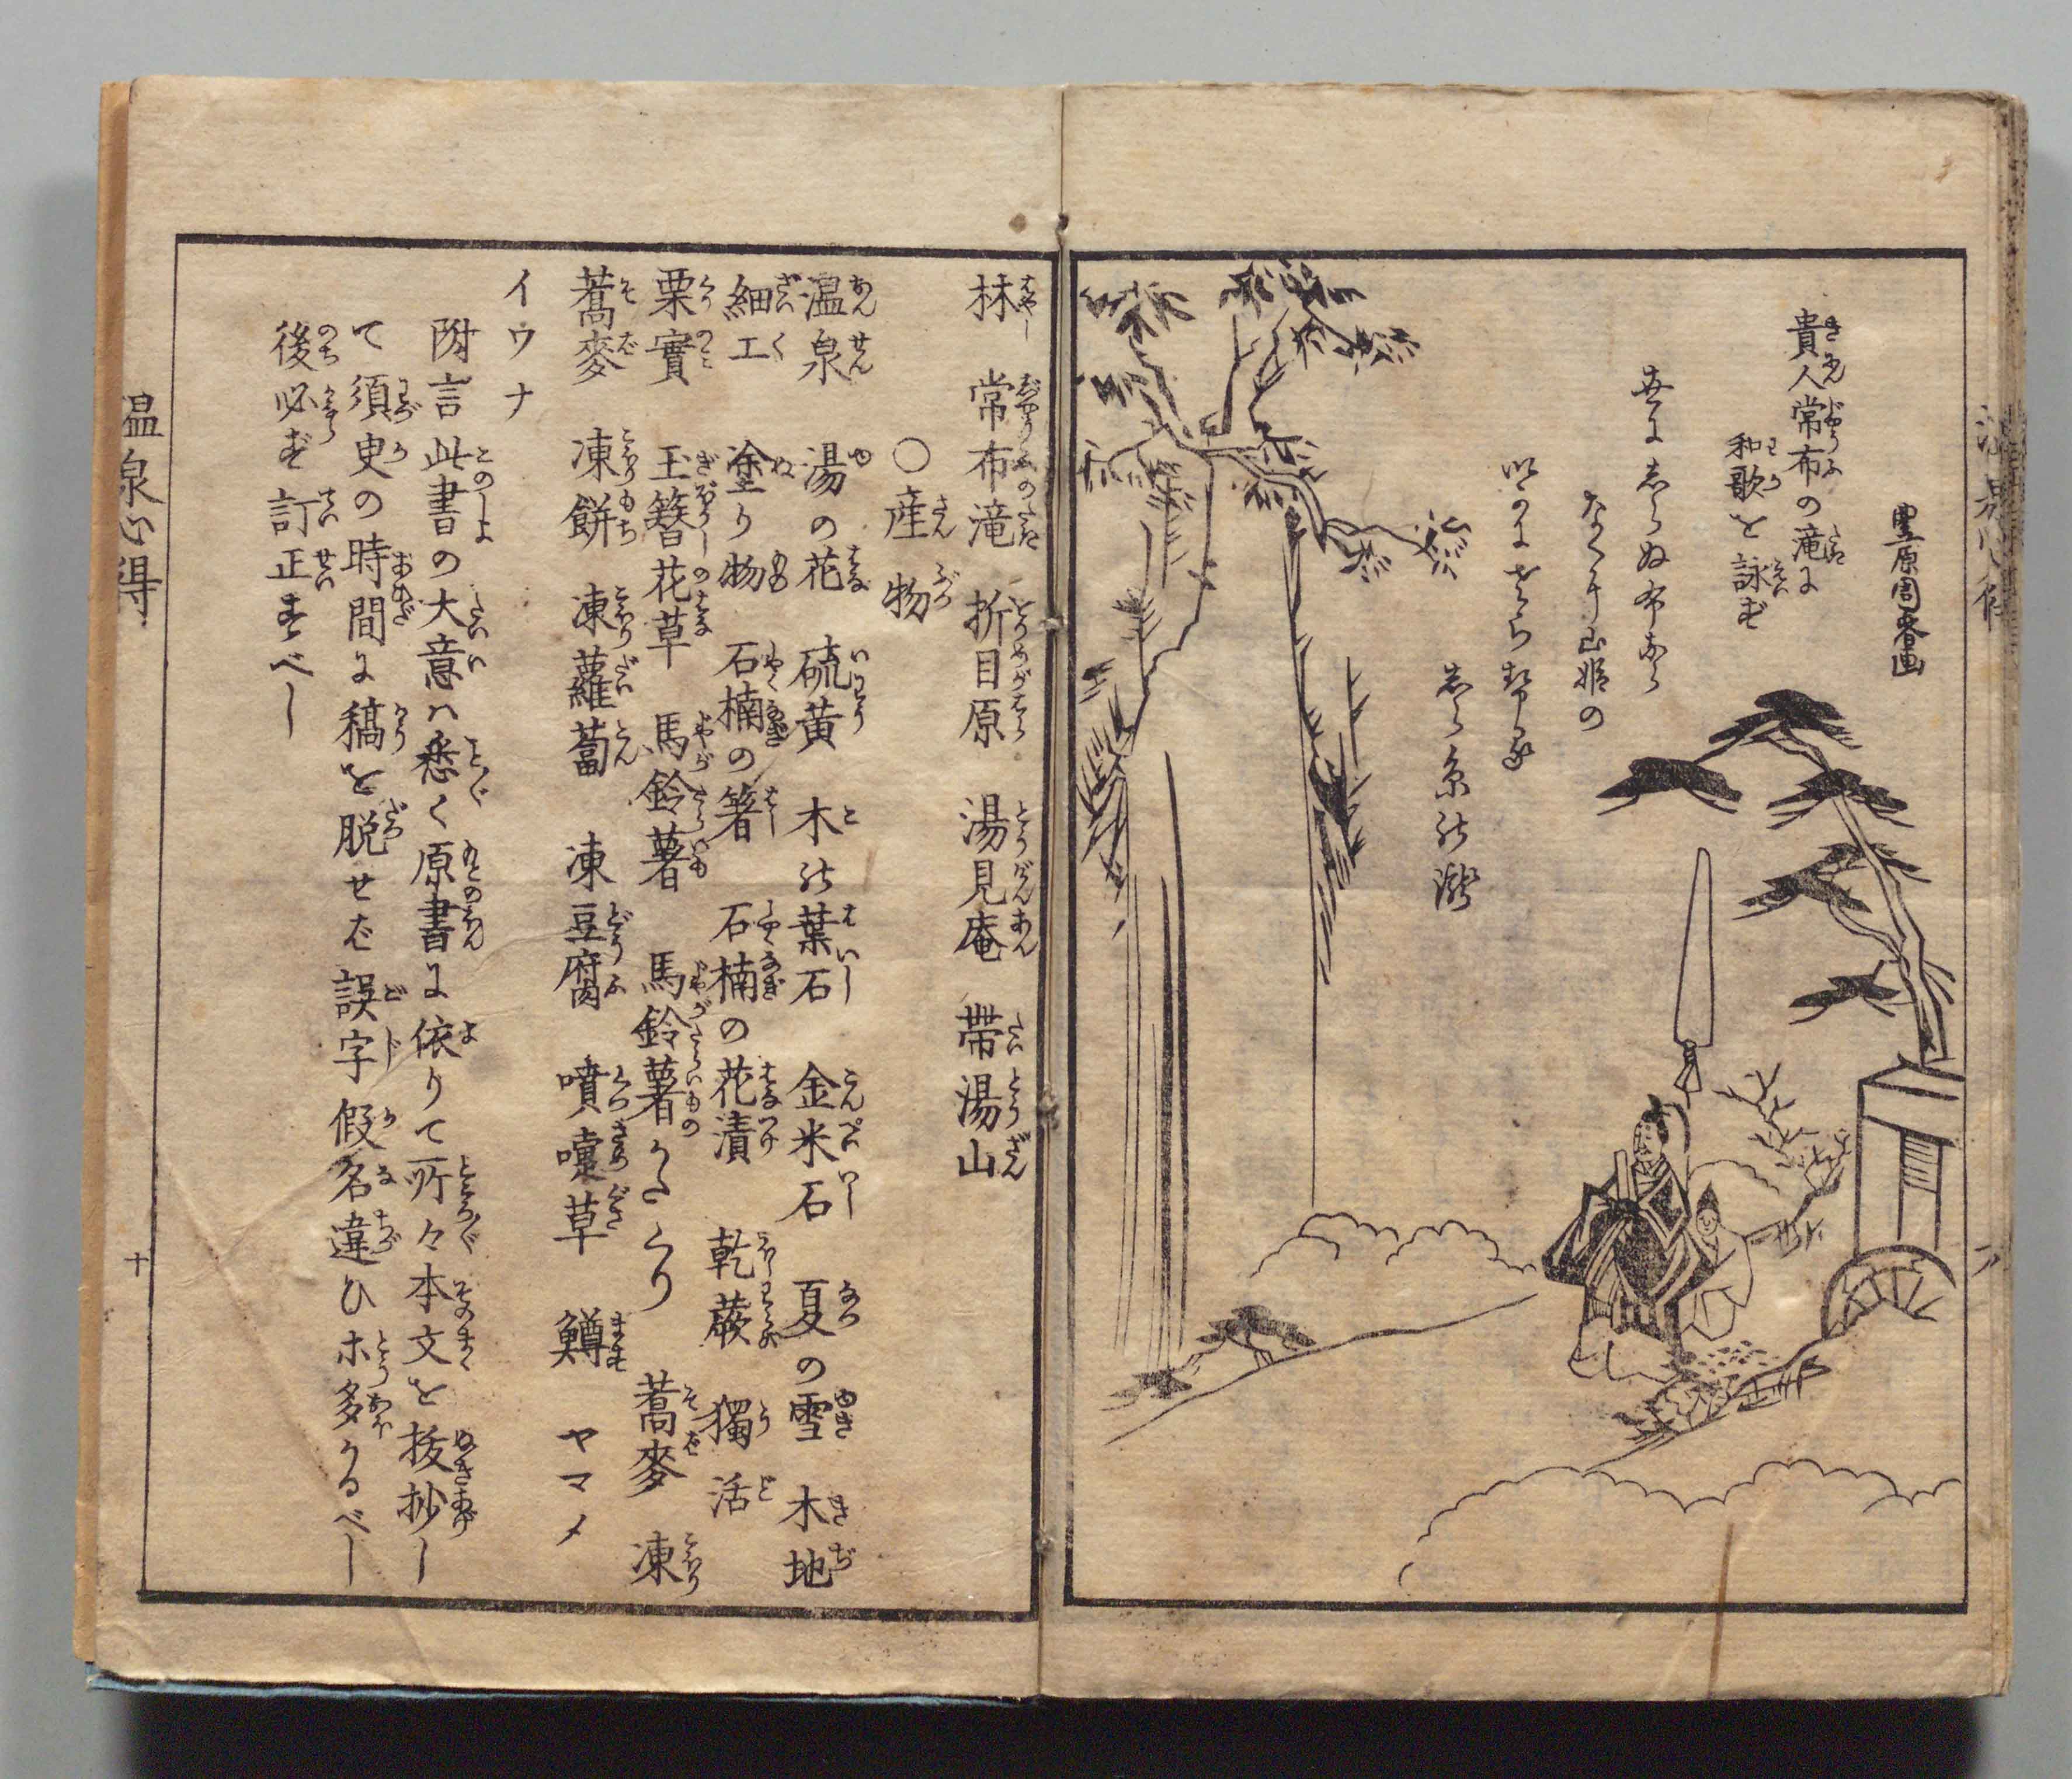 豊原周春画
貴人常布の滝に
和歌を詠ず
世にしらぬ布なら
なくに山姫の
しら糸の瀧
林 常布滝 折目原 湯見庵 帯湯山
〇産物
温泉 湯の花 硫黄 木の葉石 金米石 夏の雪 木地
細工 塗り物 石楠の箸 石楠の花漬 乾蕨 獨活
栗實 玉簪花草 馬鈴薯 馬鈴薯かたくり 蕎麥 凍
蕎麥 凍餅 凍蘿蔔 凍豆腐 噴嚏草 鱒 ヤマメ
イワナ
附言此書の大意ハ悉く原書に依りて所々本文を抜抄し
て須臾の時間に稿を脱せば誤字假名違ひホ多かるべし
後必ず訂正すべし
温泉心得
十